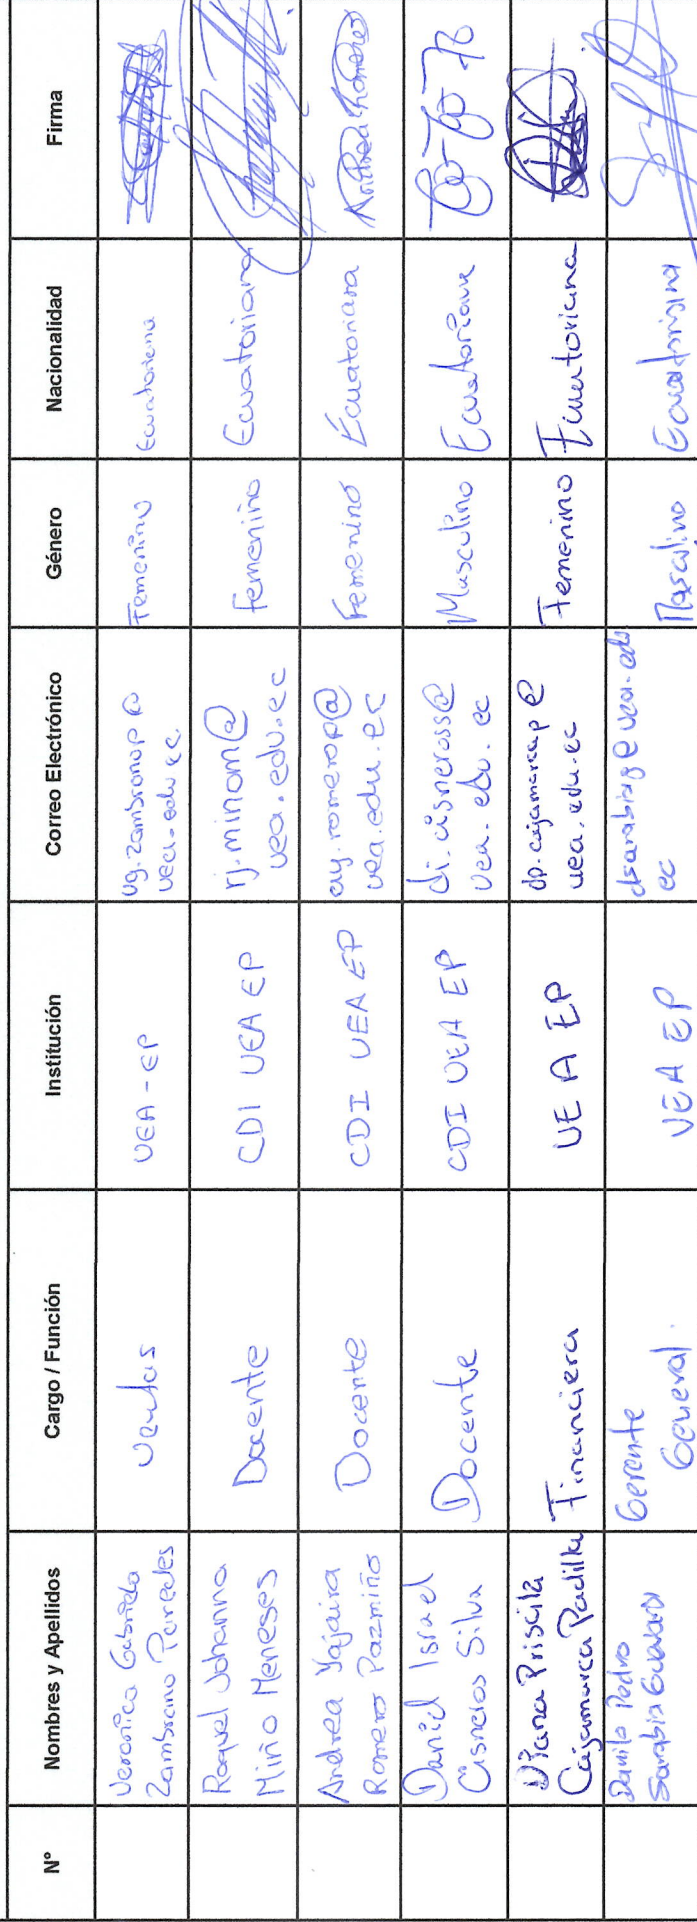 N° Nombres y Apellidos Cargo / Función Institución Correo Electrónico Género Nacionalidad Firma
Veronica Gabriela
Zambrano Paredes
Ventas
UEA - EP
vg.zambranop@
uea.edu.ec.
Femenino
Ecuatoriana
Raquel Johanna
Miño Meneses
Docente
CDI UEA EP
rj.minom@
uea.edu.ec
femenino
Ecuatoriana
Andrea Yajaira
Romero Pazmiño
Docente
CDI UEA EP
ay.romerop@
uea.edu.ec
Femenino
Ecuatoriana
Andrea Romero
Daniel Israel
Cisneros Silva
Docente
CDI UEA EP
di.cisneross@
uea.edu.ec
Masculino
Ecuatoriana
Diana Priscila
Cajamarca Padilla
Financiera
UEA EP
dp.cajamarcap@
uea.edu.ec
Femenino
Ecuatoriana
Danilo Pedro
Sarabia
Gerente
General
UEA EP
ec
Masculino
Ecuatoriana